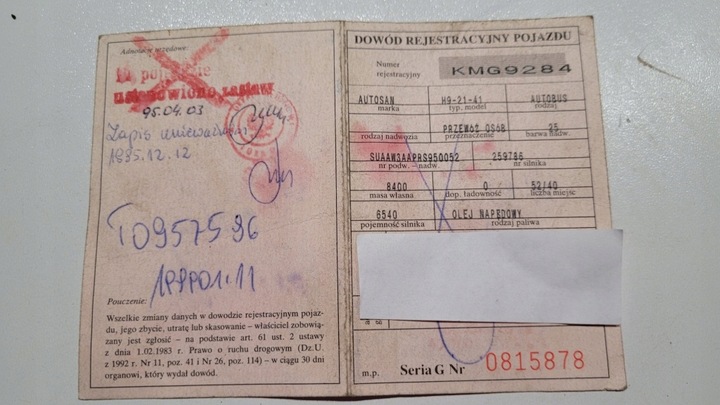 Adnotacje urzędowe:
pojazdzie
ustanowiono zastaw
95.04.03
Zapis unieważniono
1995.12.12
T0957596
1999.01.11
Pouczenie:
Wszelkie zmiany danych w dowodzie rejestracyjnym pojaz-
du, jego zbycie, utratę lub skasowanie – właściciel zobowią-
zany jest zgłosić – na podstawie art. 61 ust. 2 ustawy
z dnia 1.02.1983 r. Prawo o ruchu drogowym (Dz.U.
z 1992 r. Nr 11, poz. 41 i Nr 26, poz. 114) – w ciągu 30 dni
organowi, który wydał dowód.
DOWÓD REJESTRACYJNY POJAZDU
Numer
rejestracyjny KMG9284
AUTOSAN H9-21-41 AUTOBUS
marka typ, model rodzaj
PRZEWÓZ OSÓB 25
rodzaj nadwozia przeznaczenie barwa nadw.
SUAAWSAAPRS950052 259786
nr podw. - nadw. nr silnika
8400 0 52/40
masa własna dop. ładowność liczba miejsc
6540 OLEJ NAPĘDOWY
pojemność silnika rodzaj paliwa
m.p. Seria G Nr 0815878